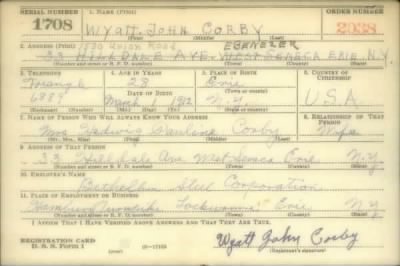 SERIAL NUMBER 1. NAME (Print) ORDER NUMBER
1708 WYATT JOHN CORBY 2038
(First) (Middle) (Last)
2. ADDRESS (Print) 1530 Union Road EBENEZER
33 HILLDALE AVE. WEST SENECA ERIE N.Y.
(Number and street or R. F. D. number) (Town) (County) (State)
3. TELEPHONE 4. AGE IN YEARS 5. PLACE OF BIRTH 6. COUNTRY OF CITIZENSHIP
28 Erie
DATE OF BIRTH (Town or county)
6888 March 1 1912 N.Y. U.S.A.
(Exchange) (Number) (Mo.) (Day) (Yr.) (State or country)
7. NAME OF PERSON WHO WILL ALWAYS KNOW YOUR ADDRESS 8. RELATIONSHIP OF THAT PERSON
Mrs. Hedwig Corby Wife
(Mr., Mrs., Miss) (First) (Middle) (Last)
9. ADDRESS OF THAT PERSON
33 Hilldale Ave West Seneca Erie N.Y.
(Number and street or R. F. D. number) (Town) (County) (State)
10. EMPLOYER'S NAME
Bethelhem Steel Corporation
11. PLACE OF EMPLOYMENT OR BUSINESS
Hamburg Turnpike Lackawanna Erie N.Y.
(Number and street or R. F. D. number) (Town) (County) (State)
I AFFIRM THAT I HAVE VERIFIED ABOVE ANSWERS AND THAT THEY ARE TRUE.
REGISTRATION CARD
D. S. S. Form 1 Wyatt John Corby
(Registrant's signature)